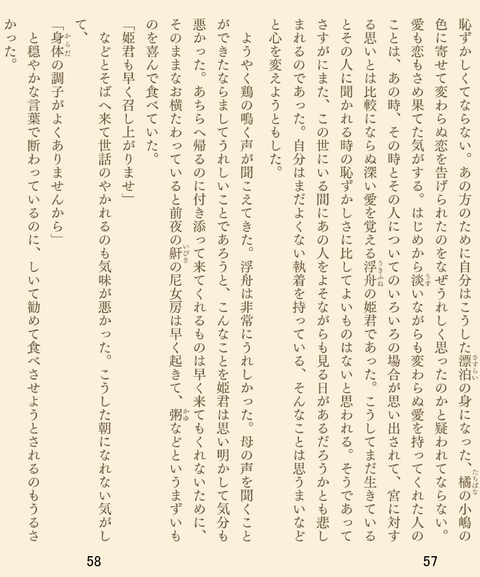 恥ずかしくてならない。あの方のために自分はこうした漂泊の身になった、橘の小嶋の
色に寄せて変わらぬ恋を告げられたのをなぜうれしく思ったのかと疑われてならない。
愛も恋もさめ果てた気がする。はじめから淡いながらも変わらぬ愛を持ってくれた人の
ことは、あの時、その時とその人についてのいろいろの場合が思い出されて、宮に対す
る思いとは比較にならぬ深い愛を覚える浮舟の姫君であった。こうしてまだ生きている
とその人に聞かれる時の恥ずかしさに比してよいものはないと思われる。そうであって
さすがにまた、この世にいる間にあの人をよそながらも見る日があるだろうかとも悲し
まれるのであった。自分はまだよくない執着を持っている、そんなことは思うまいなど
と心を変えようともした。
ようやく鶏の鳴く声が聞こえてきた。浮舟は非常にうれしかった。母の声を聞くこと
ができたならましてうれしいことであろうと、こんなことを姫君は思い明かして気分も
悪かった。あちらへ帰るのに付き添って来てくれるものは早く来てもくれないために、
そのままなお横たわっていると前夜の鼾の尼女房は早く起きて、粥などというまずいも
のを喜んで食べていた。
「姫君も早く召し上がりませ」
などとそばへ来て世話のやかれるのも気味が悪かった。こうした朝になれない気がし
て、
「身体の調子がよくありませんから」
と穏やかな言葉で断わっているのに、しいて勧めて食べさせようとされるのもうるさ
かった。
58
57